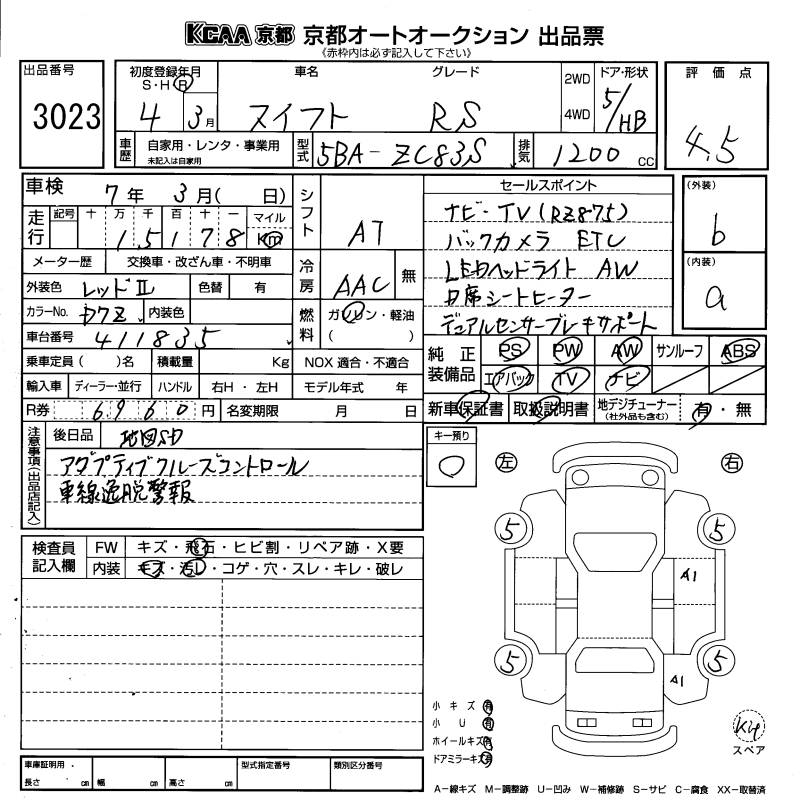 KCAA 京都 京都オートオークション 出品票
《赤枠内は必ず記入して下さい》
出品番号 3023
初度登録年月 S・H・R 4 3月
車名 スイフト
グレード RS
2WD 4WD
ドア・形状 5/HB
評価点 4.5
車歴 自家用・レンタ・事業用 未記入は自家用
型式 5BA-ZC83S
排気 1200 CC
車検 7年 3月( 日)
走行 記号 十 万 千 百 十 一 マイル
1 5 1 7 8 Km
メーター歴 交換車・改ざん車・不明車
外装色 レッドⅡ 色替 有
カラーNo. 内装色
車台番号 411835
乗車定員( )名 積載量 Kg NOX 適合・不適合
輸入車 ディーラー・並行 ハンドル 右H・左H モデル年式 年
R券 6960円 名変期限 月 日
シフト AT
冷房 AAC 無
燃料 ガソリン・軽油 ( )
セールスポイント
ナビ・TV(RZ875)
バックカメラ ETC
LEDヘッドライト AW
D席シートヒーター
デュアルセンサーブレーキサポート
(外装) b
(内装) a
純正装備品 PS PW AW サンルーフ ABS
エアバック TV ナビ
新車保証書 取扱説明書 地デジチューナー (社外品も含む) 有・無
注意事項(出品店記入)
後日品 地図SD
アダプティブクルーズコントロール
車線逸脱警報
キー預り 〇
左 右
5 5
A1
5 5
A1
検査員記入欄 FW キズ・飛石・ヒビ割・リペア跡・X要
内装 キズ・汚レ・コゲ・穴・スレ・キレ・破レ
小キズ 有
小U 有
ホイールキズ 有
ドアミラーキズ 有
スペア
車庫証明用 長さ cm 幅 cm 高さ cm
型式指定番号
類別区分番号
A-線キズ M-調整跡 U-凹み W-補修跡 S-サビ C-腐食 XX-取替済